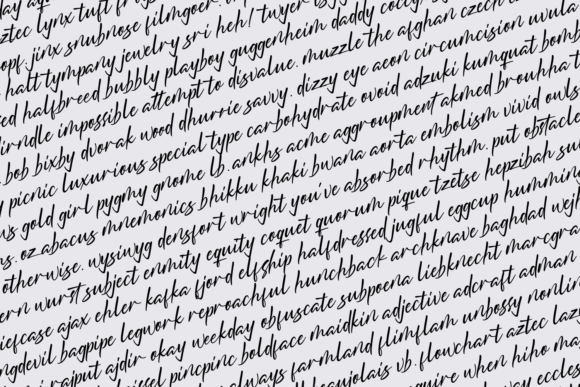 lynx tuft
aztec jinx snubnose filmgoer
halt tympany jewelry sri heh! twyer
halfbreed bubbly playboy guggenheim daddy
dirndle impossible attempt to disvalue. muzzle the afghan czech
bob bixby dvorak wood dhurrie savvy. dizzy eye aeon circumcision uvula
picnic luxurious special type carbohydrate ovoid adzuki kumquat
gold girl pygmy gnome lb. ankhs acme aggroupment akmed brouhha
oz abacus mnemonics bhikku khaki bwana aorta embolism vivid owls
otherwise. wysiwyg densfort wright you've absorbed rhythm. put obstacle
wurst subject enmity equity coquet quorum pique tzetse hepzibah
ajax ehler kafka fjord elfship halfdressed jugful eggcup humming
bagpipe legwork reproachful hunchback archknave baghdad
rajput ajdir okay weekday obfuscate subpoena liebknecht
pincpinc boldface maidkin adjective adcraft adman
always farmland flimflam unbossy
beaujolais vb. flowchart aztec
when hiho